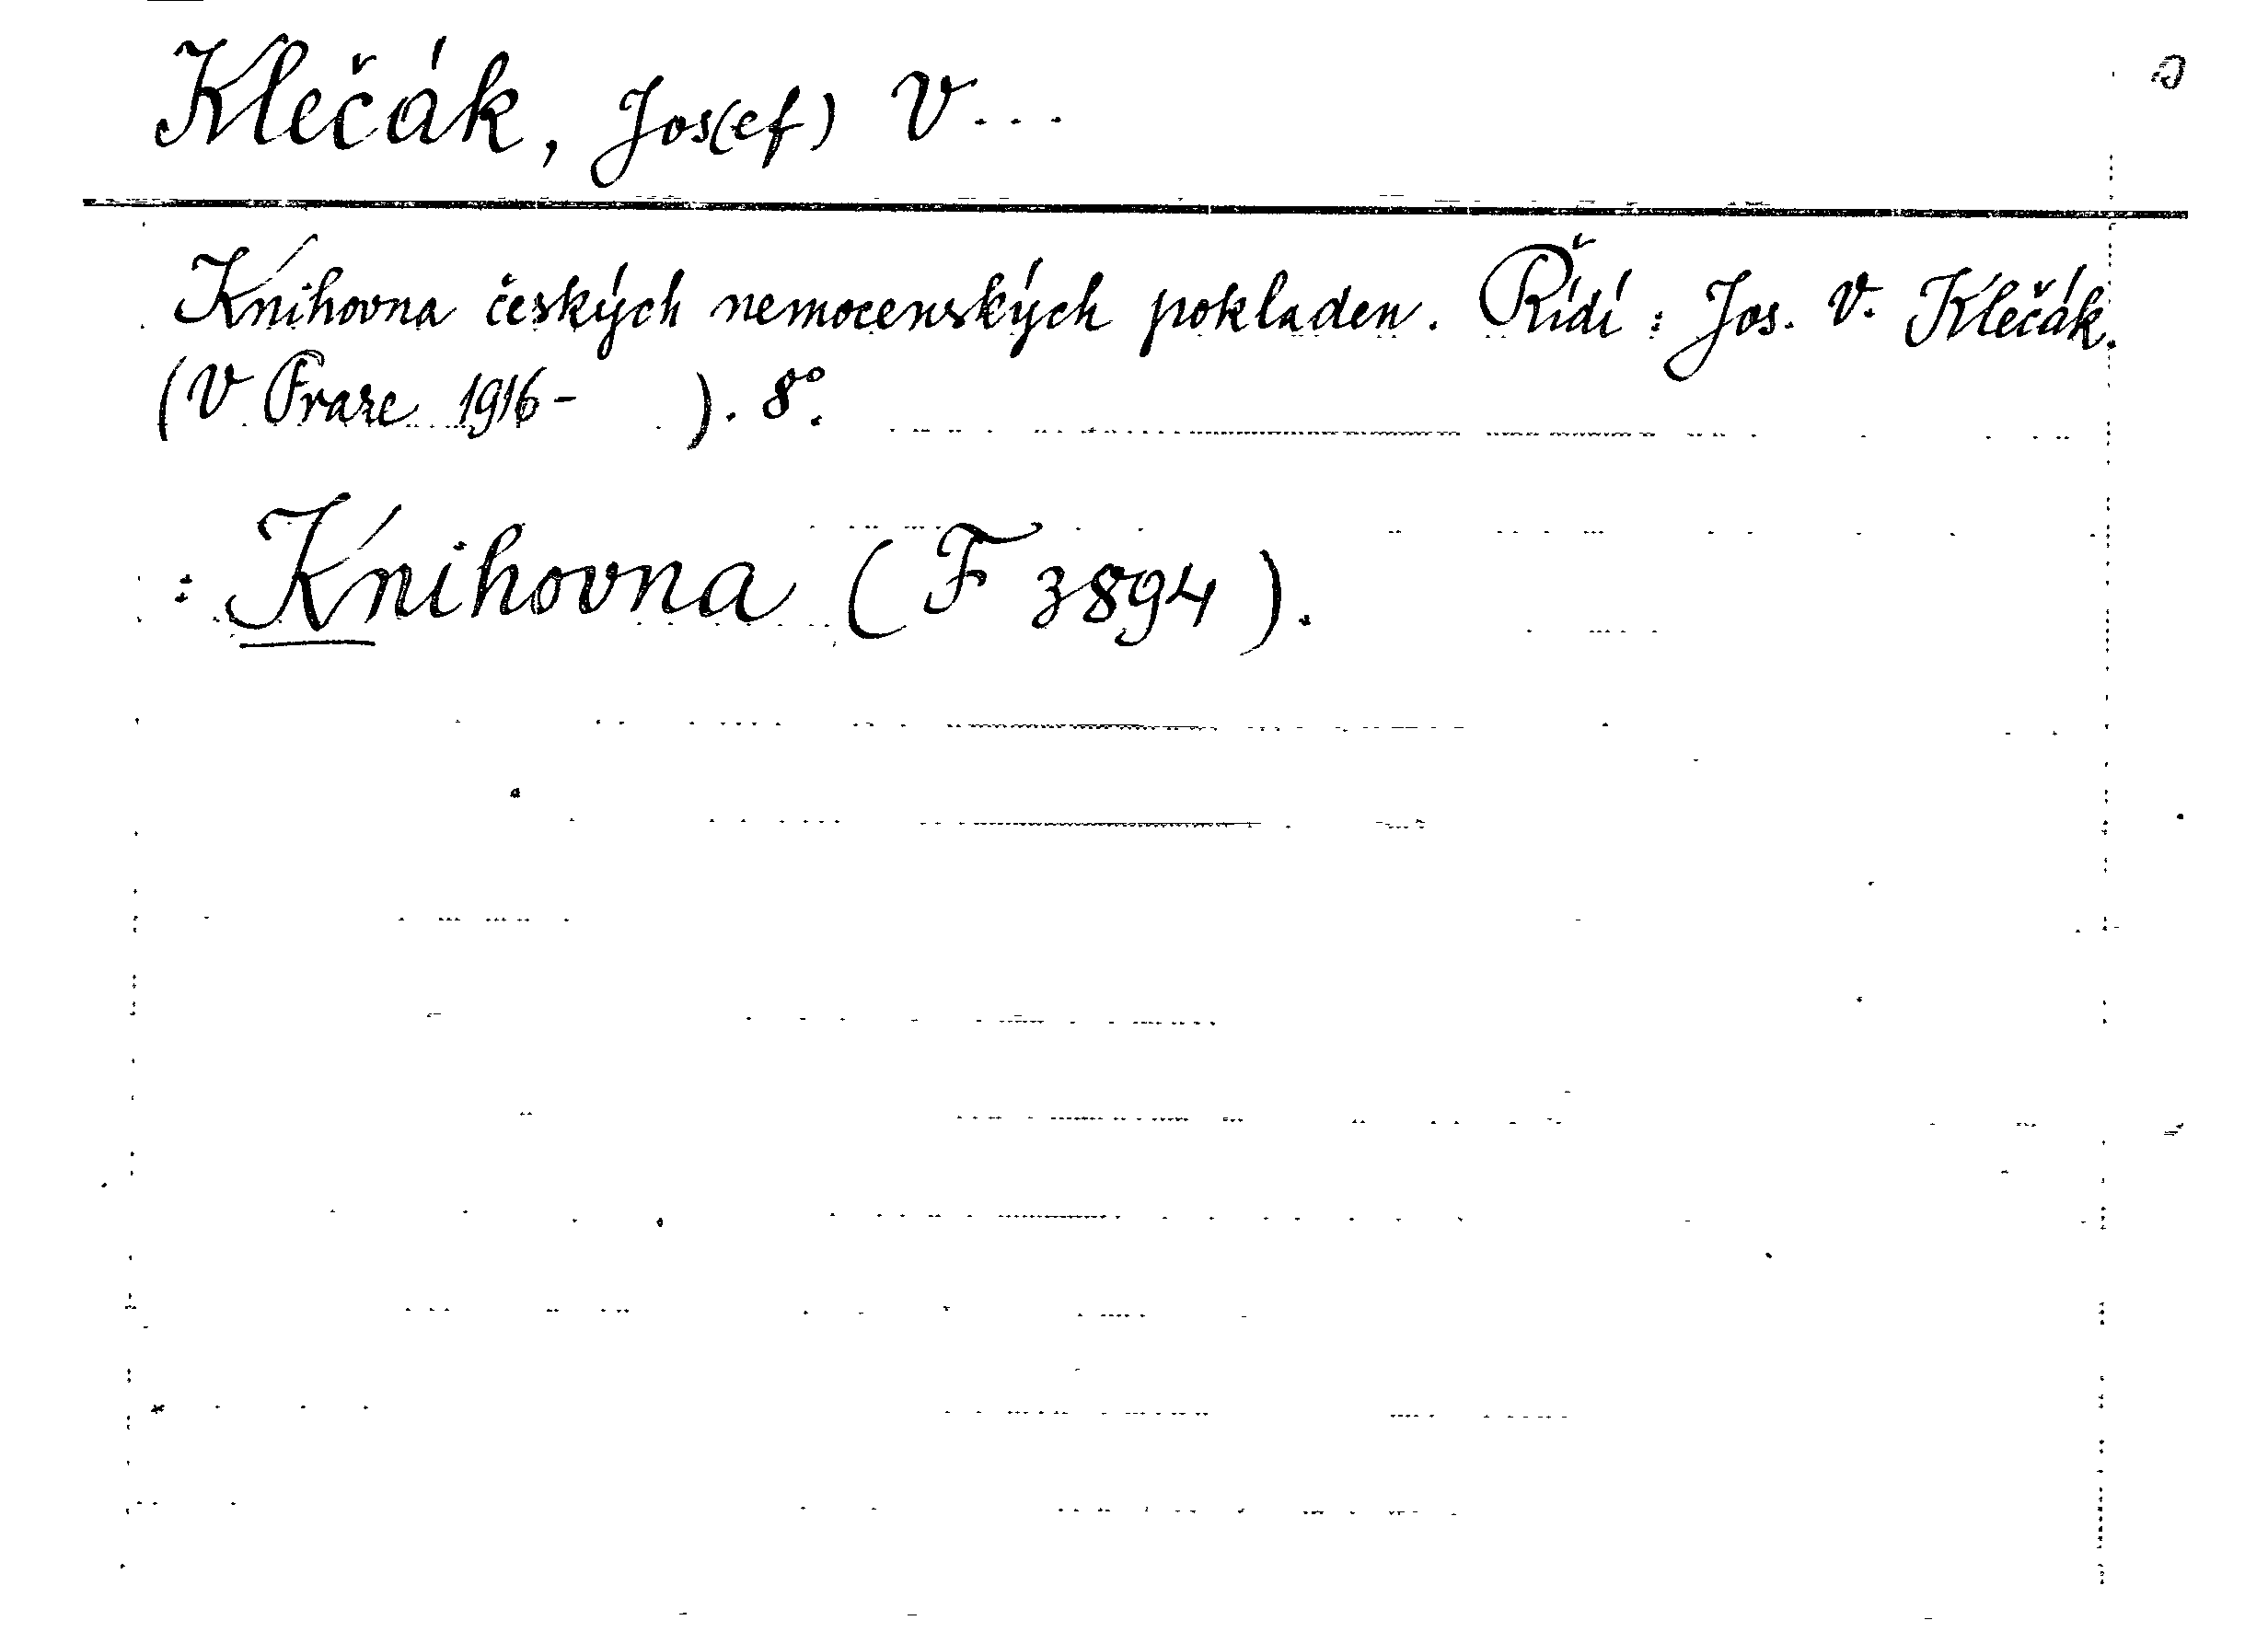 Klečák, Jos(ef) V...
Knihovna českých nemocenských pokladen. Řídí: Jos. V. Klečák.
(V Praze 1916- ). 8°.
: Knihovna (F 3894).